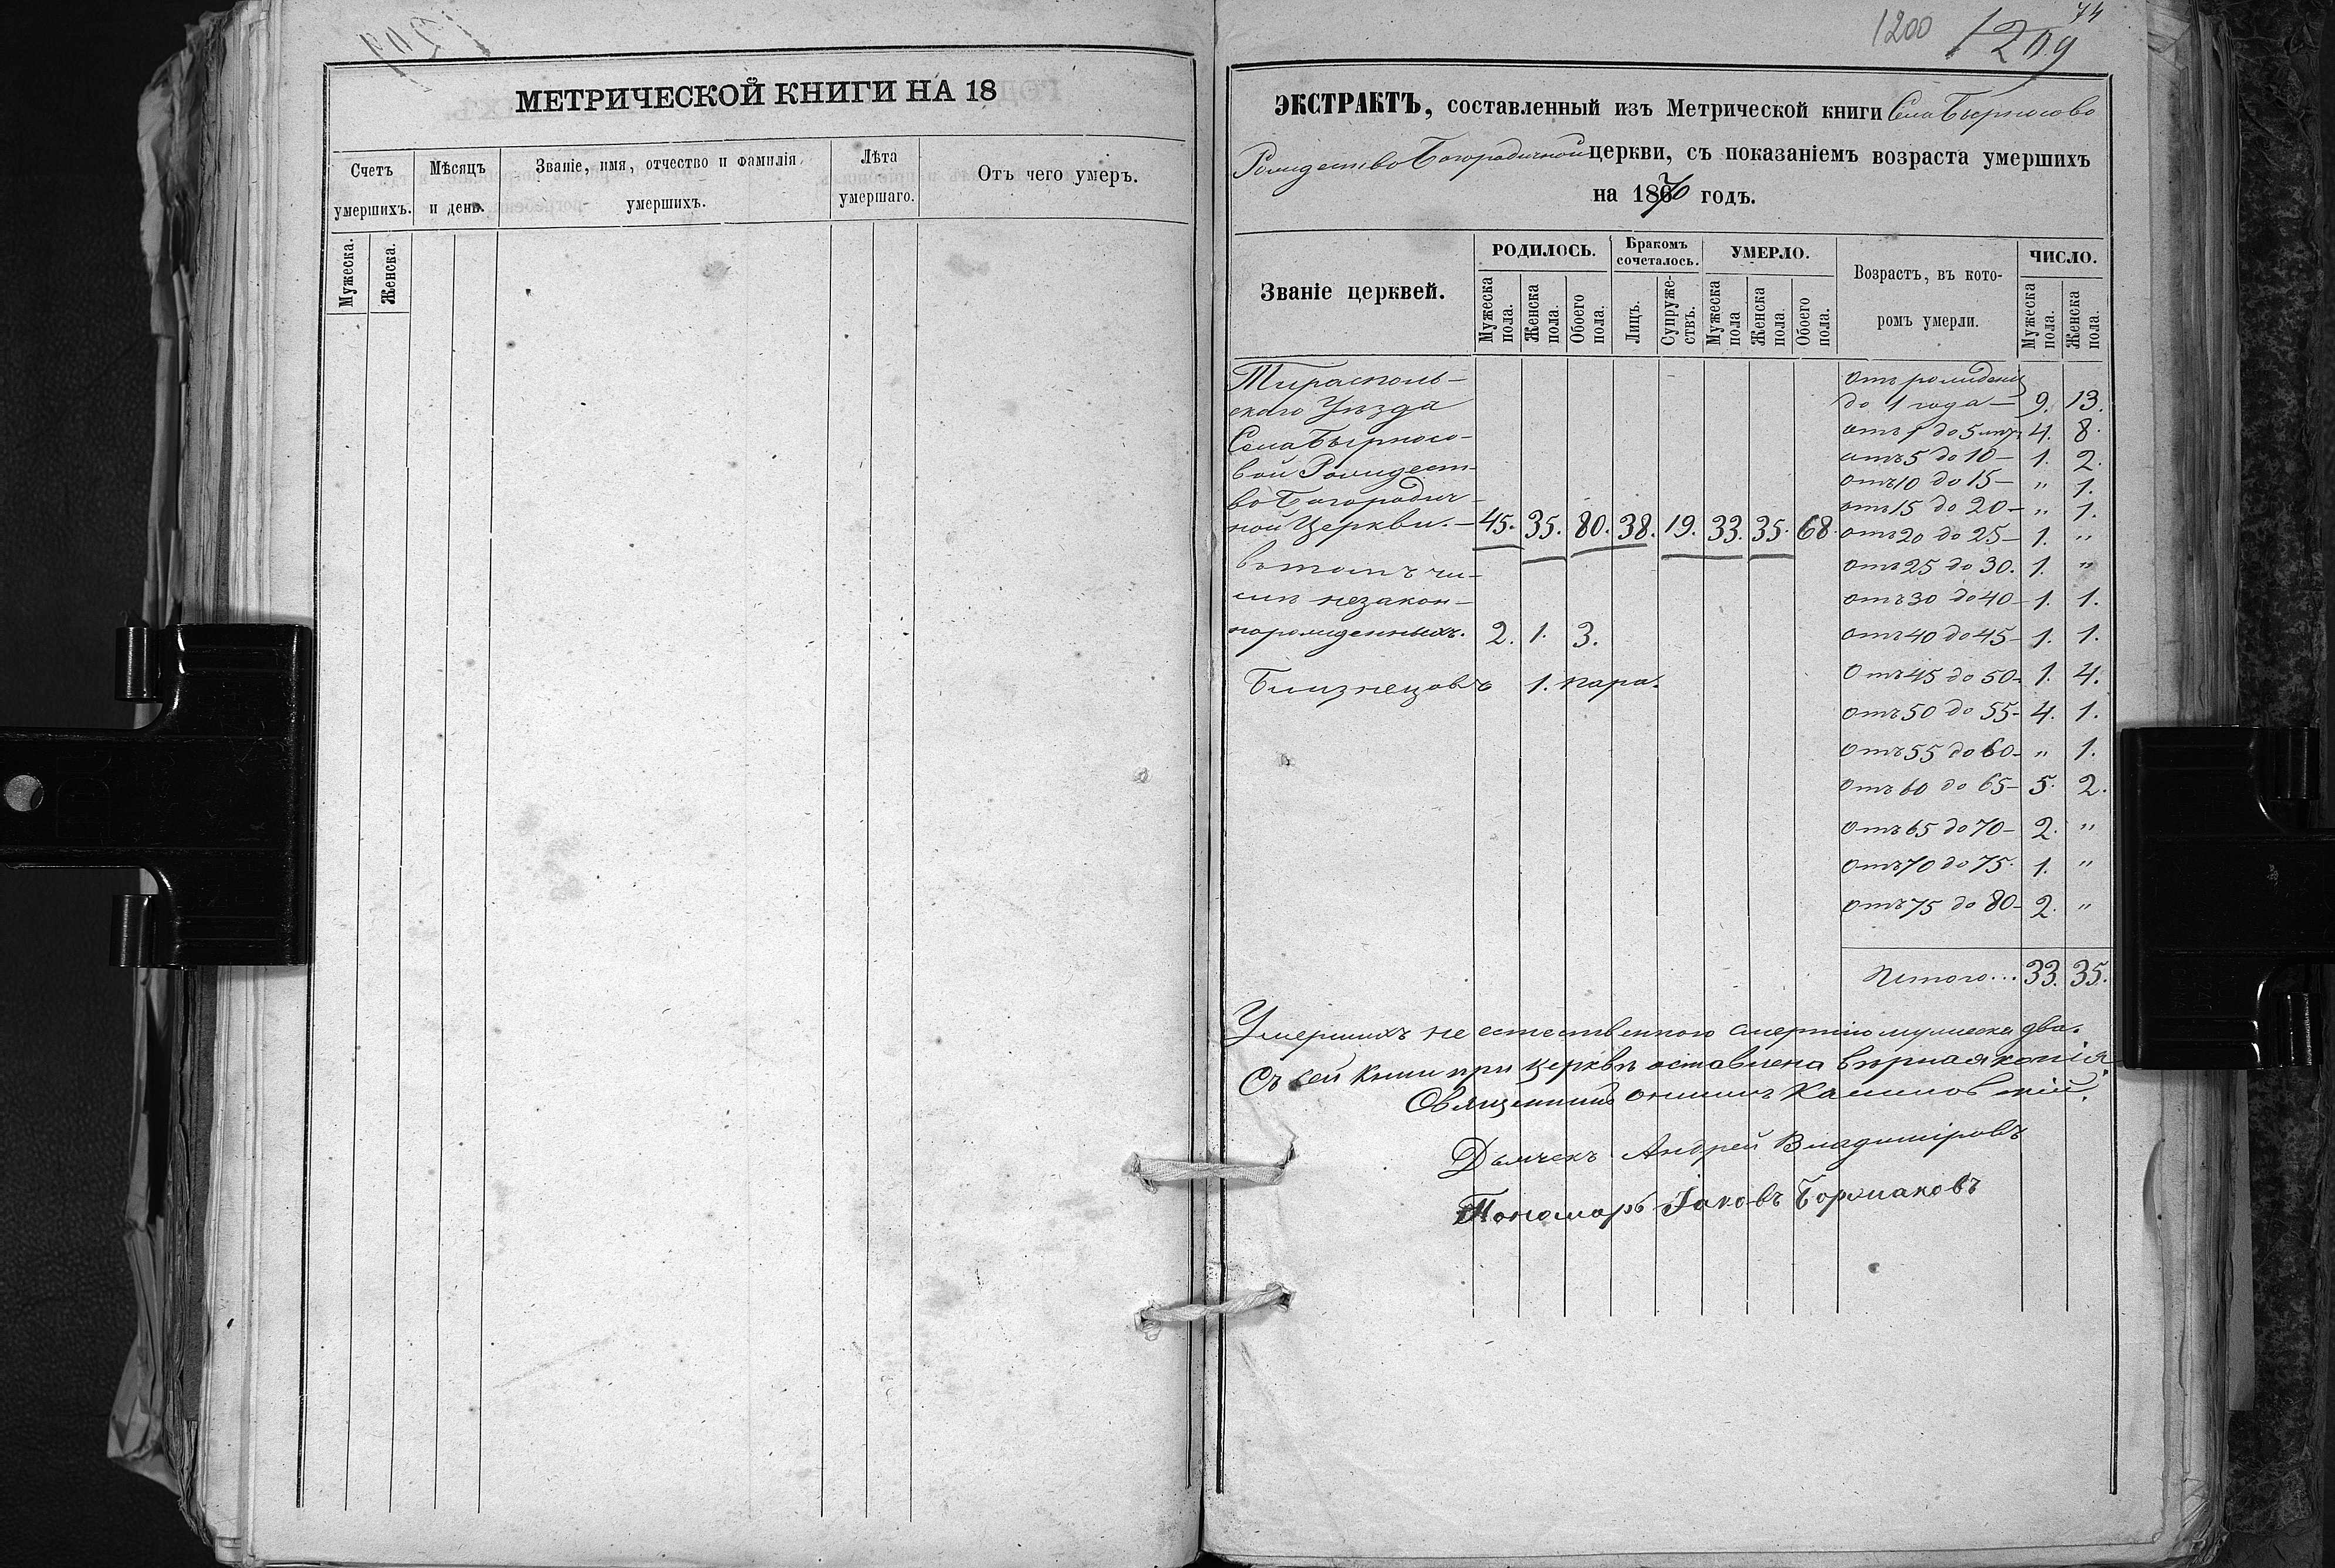 МЕТРИЧЕСКОЙ КНИГИ НА 18
Счетъ умершихъ.
Мѣсяцъ и день.
Званіе, имя, отчество и фамилія умершихъ.
Лѣта умершаго.
Отъ чего умеръ.
Мужеска.
Женска.
1200 1209 74
ЭКСТРАКТЪ, составленный изъ Метрической книги Села Бырносово
Рождество Богородичной церкви, съ показаніемъ возраста умершихъ
на 1870 годъ.
Званіе церквей.
РОДИЛОСЬ.
Бракомъ сочеталось.
УМЕРЛО.
Возрастъ, въ которомъ умерли.
ЧИСЛО.
Мужеска пола.
Женска пола.
Обоего пола.
Лицъ.
Супружествъ.
Мужеска пола
Женска пола.
Обоего пола.
Мужеска пола.
Женска пола.
Тирасполь-
скаго Уѣзда
Села Бырносо-
вой Рождест-
во Богородич-
ной Церкви. — 45. 35. 80. 38. 19. 33. 35. 68.
въ томъ чи-
слѣ незакон-
норожденныхъ. 2. 1. 3.
Близнецовъ 1. пара.
отъ рожденія
до 1 года — 9. 13.
отъ 1 до 5 лѣтъ 4. 8.
отъ 5 до 10 — 1. 2.
отъ 10 до 15 — " 1.
отъ 15 до 20 — " 1.
отъ 20 до 25 — 1. "
отъ 25 до 30. 1. "
отъ 30 до 40 — 1. 1.
отъ 40 до 45 — 1. 1.
отъ 45 до 50 — 1. 4.
отъ 50 до 55 — 4. 1.
отъ 55 до 60 — " 1.
отъ 60 до 65 — 5. 2.
отъ 65 до 70 — 2. "
отъ 70 до 75. 1. "
отъ 75 до 80 — 2. "
Итого... 33. 35.
Умершихъ не естественною смертію мужеска два.
Съ сей книги при церквѣ оставлена вѣрная копія
Священникъ
Дьячекъ Андрей Владиміровъ
Пономарь Іаковъ